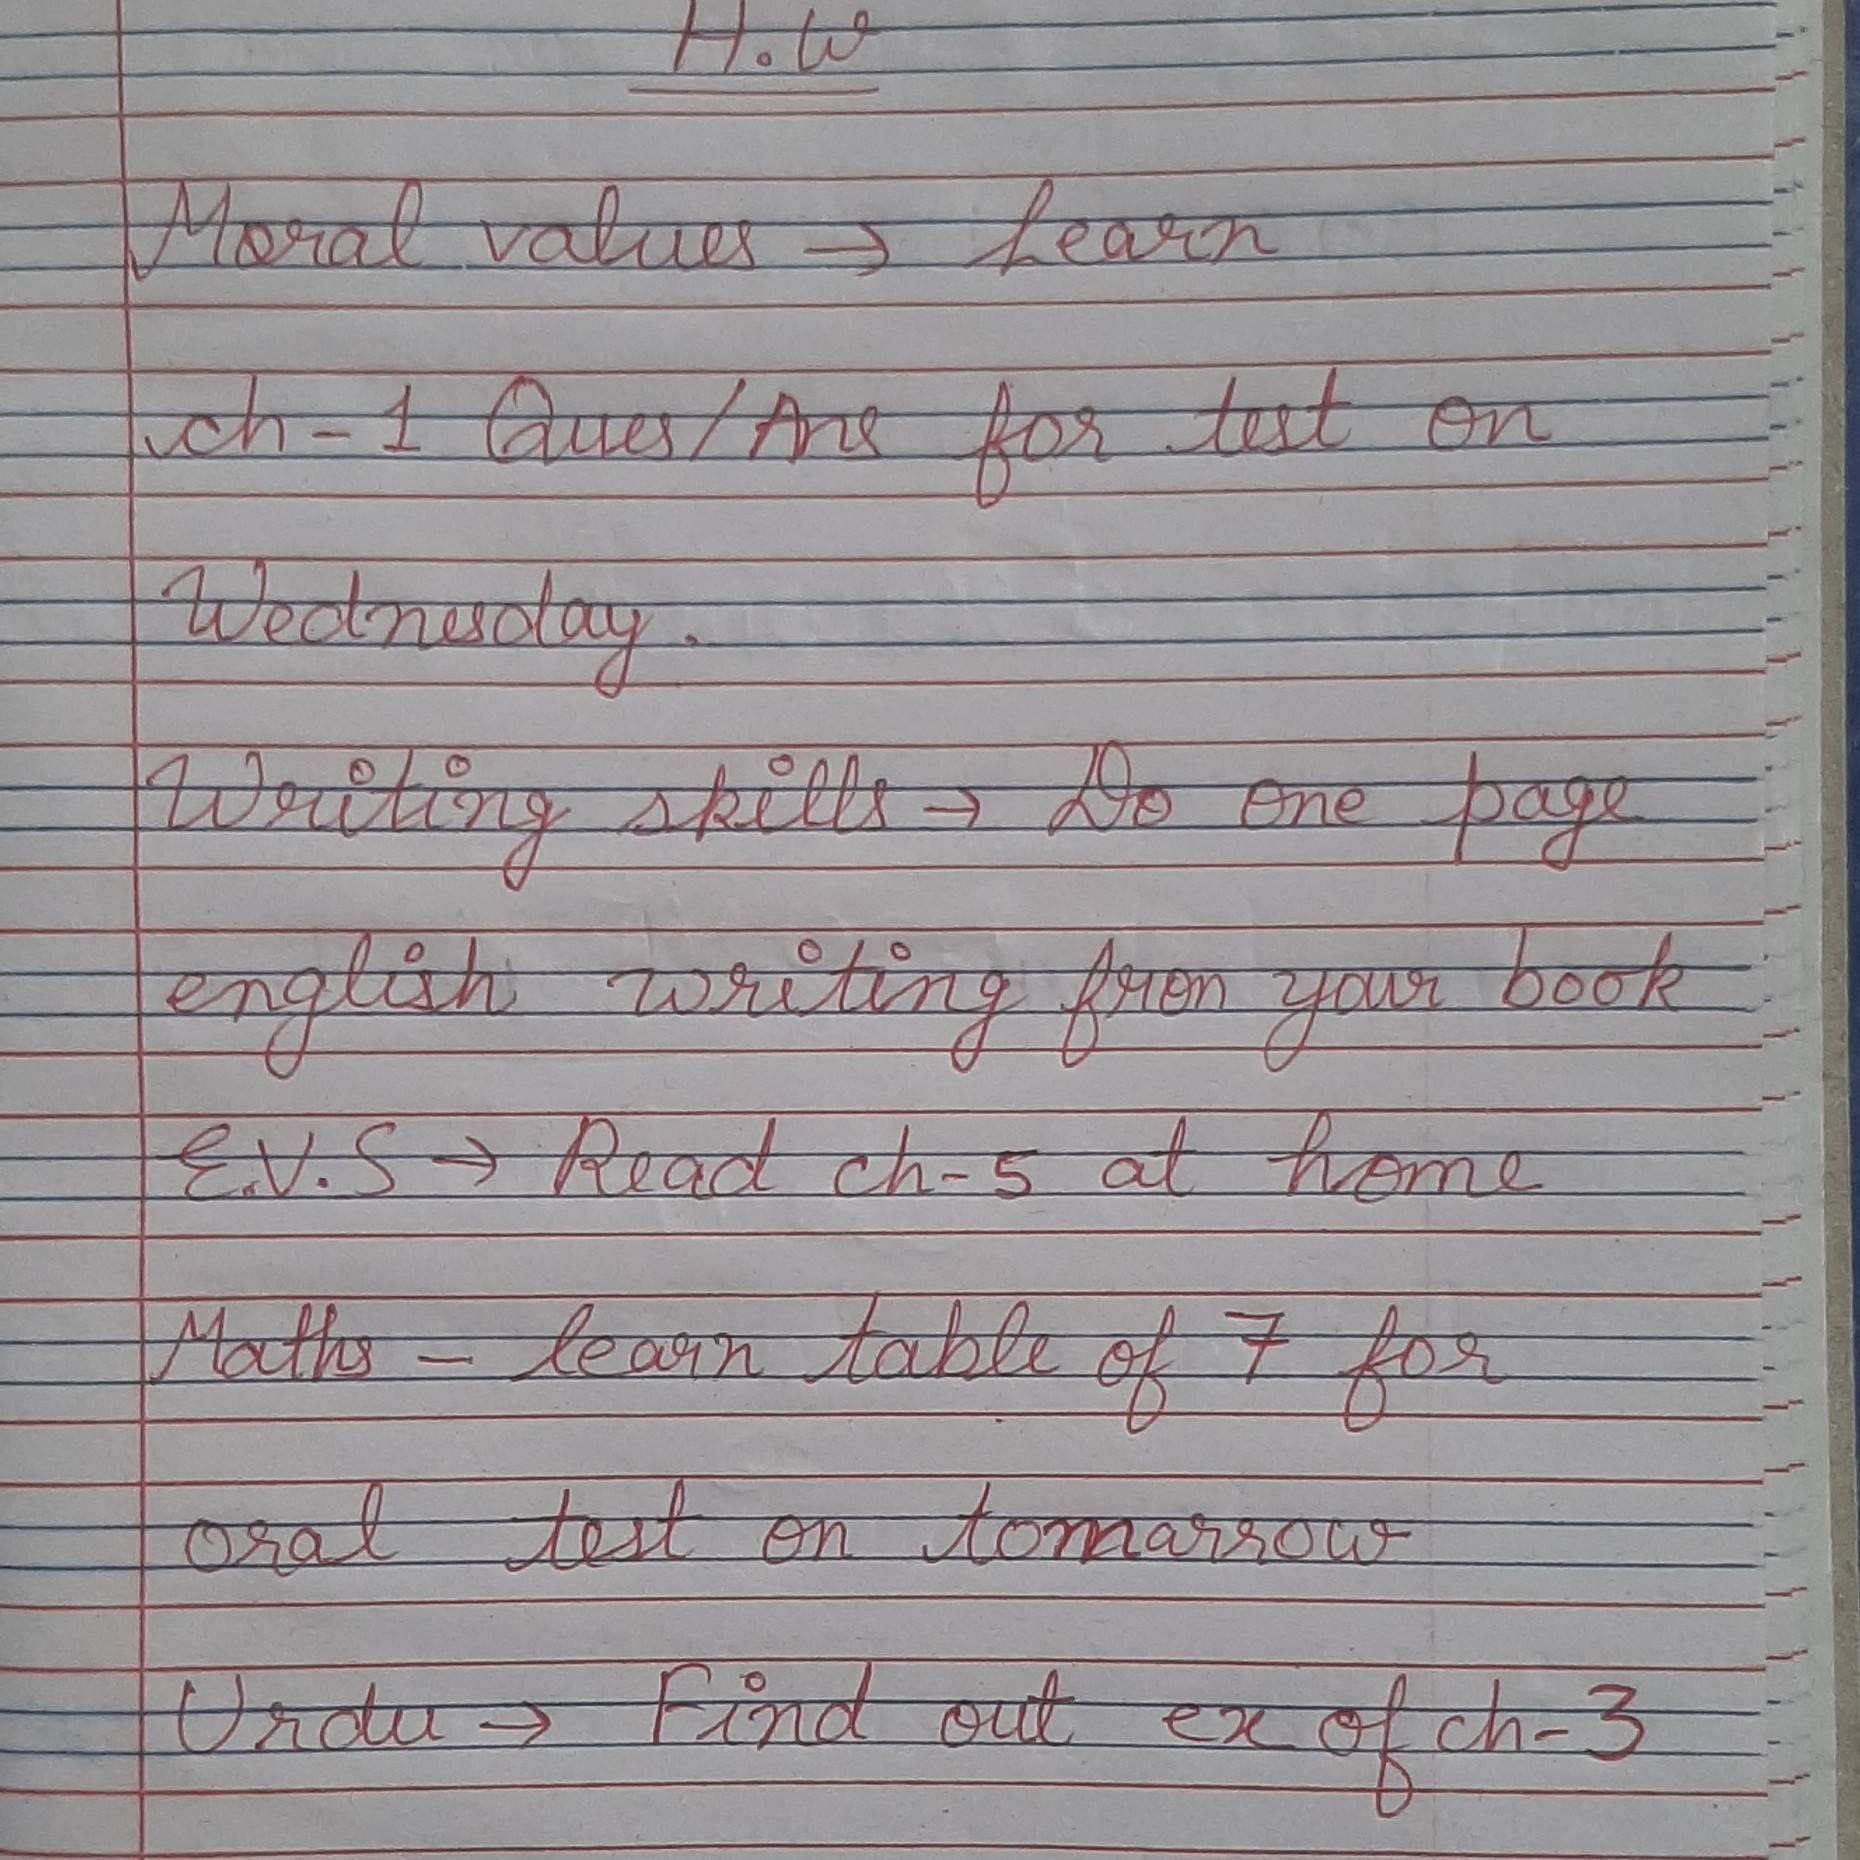 H.W
Moral values → Learn
ch-1 Ques/Ans for test on
Wednesday.
Writing skills → Do one page
english writing fron your book
E.V.S → Read ch-5 at home
Maths - learn table of 7 for
oral test on tomarrow
Urdu → Find out ex of ch-3